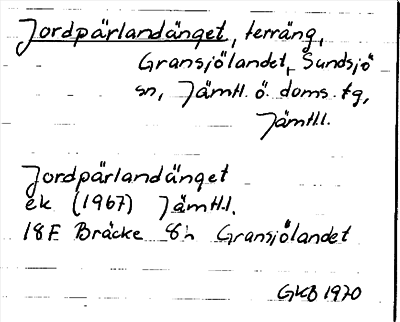 Jordpärlandänget, terräng,
Gransjölandet, Sundsjö
sn, Jämtl. ö. doms. tg,
Jämtl.
Jordpärlandänget
ek (1967) Jämtl.
18F Bräcke 8h Gransjölandet
GKB 1970